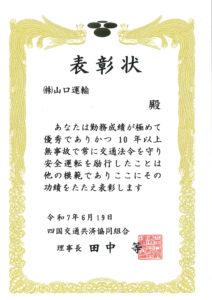 表彰状
㈱山口運輸
殿
あなたは勤務成績が極めて
優秀でありかつ10年以上
無事故で常に交通法令を守り
安全運転を励行したことは
他の模範でありここにその
功績をたたえ表彰します
令和7年6月19日
四国交通共済協同組合
理事長 田中 等